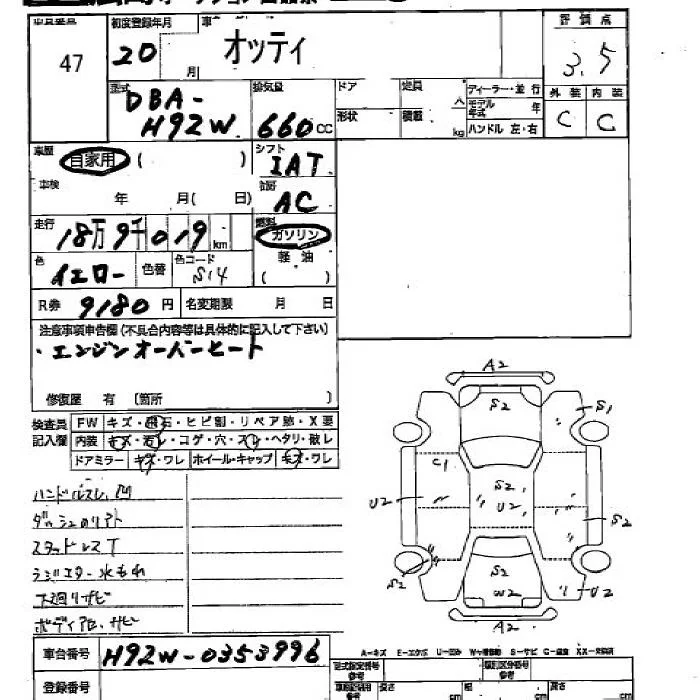 出品番号 初度登録年月 車名 評価点
47 20 月 オッティ 3.5
型式 排気量 ドア 定員 人 ディーラー・並行 外装 内装
DBA- 形状 積載 kg モデル年式 年 C C
H92W 660cc ハンドル 左・右
車歴 自家用 ( ) シフト IAT
車検 年 月( 日) AC
走行 18万9千019km 燃料 ガソリン
色 イエロー 色替 色コード S14 軽油 ( )
R券 9180円 名変期限 月 日
注意事項申告欄(不具合内容等は具体的に記入して下さい)
・エンジンオーバーヒート
修復歴 有 (箇所 )
検査員記入欄 FW キズ・飛石・ヒビ割・リペア跡・X要
内装 キズ・汚レ・コゲ・穴・スレ・ヘタリ・破レ
ドアミラー キズ・ワレ ホイール・キャップ キズ・ワレ
ハンドルスレ、凹
スタッドレスT
ラジエター水もれ
下廻りサビ
A2
S2 S1
C1
U2 S2 U2 S2
S2 S2 W2 U2
A2
A-キズ E-エクボ U-凹み W-補修跡 S-サビ C-腐食 XX-交換済
車台番号 H92W-0353996
登録番号 型式指定番号 参考 類別区分番号 参考
長さ cm 幅 cm 高さ cm